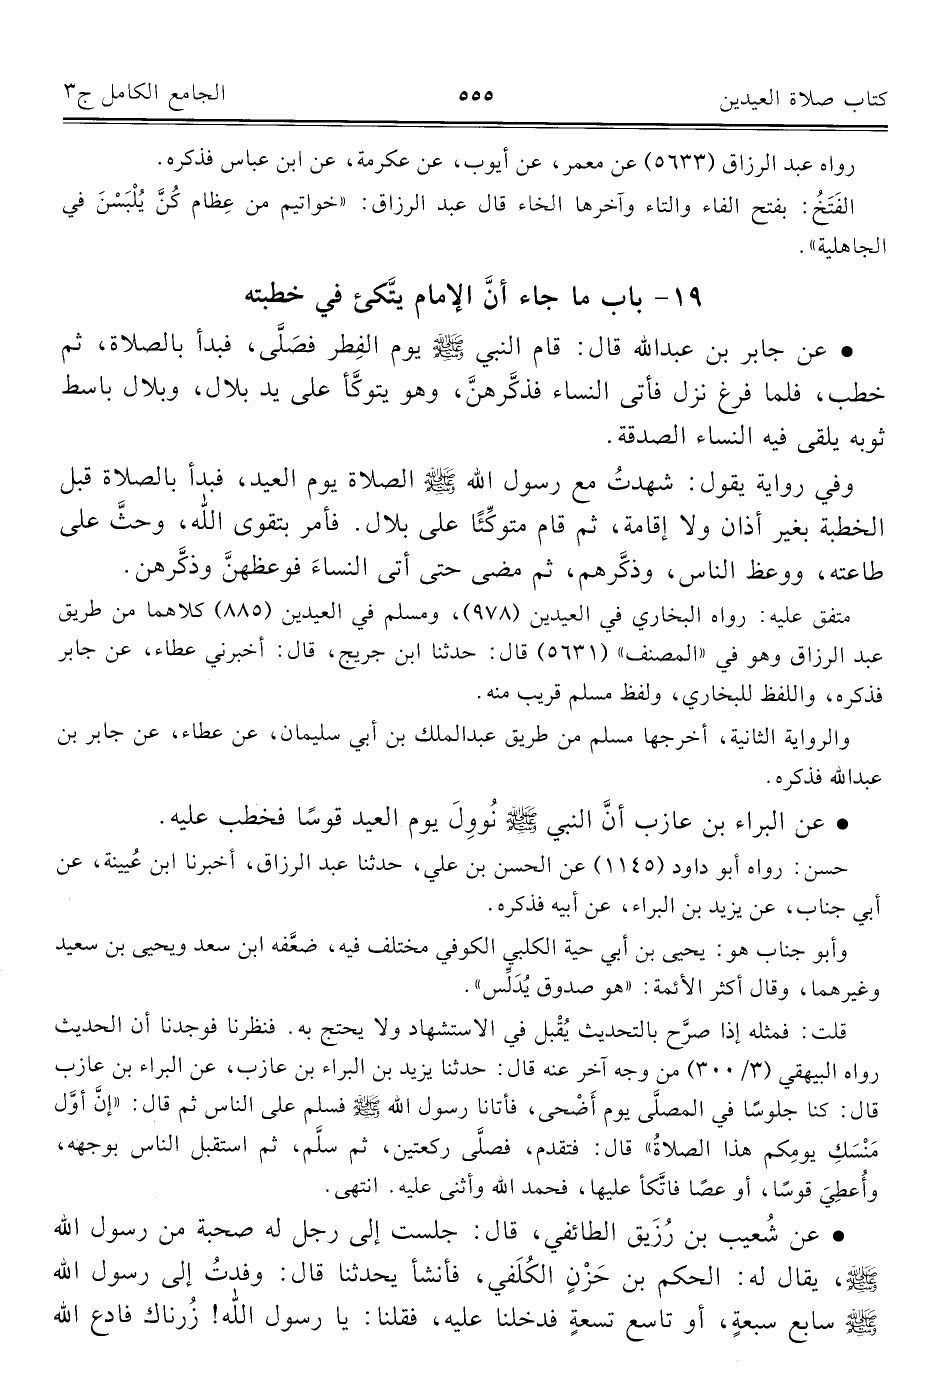 كتاب صلاة العيدين ٥٥٥ الجامع الكامل ج٣
رواه عبد الرزاق (٥٦٣٣) عن معمر، عن أيوب، عن عكرمة، عن ابن عباس فذكره.
الفَتَخُ: بفتح الفاء والتاء وآخرها الخاء قال عبد الرزاق: «خواتيم من عِظام كُنَّ يُلْبَسْنَ في
الجاهلية».
١٩- باب ما جاء أنَّ الإمام يتَّكئ في خطبته
• عن جابر بن عبدالله قال: قام النبي ﷺ يوم الفِطر فصَلَّى، فبدأ بالصلاة، ثم
خطب، فلما فرغ نزل فأتى النساء فذكَّرهنَّ، وهو يتوكَّأ على يد بلال، وبلال باسط
ثوبه يلقى فيه النساء الصدقة.
وفي رواية يقول: شهدتُ مع رسول الله ﷺ الصلاة يوم العيد، فبدأ بالصلاة قبل
الخطبة بغير أذان ولا إقامة، ثم قام متوكِّئًا على بلال. فأمر بتقوى الله، وحثَّ على
طاعته، ووعظ الناس، وذكَّرهم، ثم مضى حتى أتى النساءَ فوعظهنَّ وذكَّرهن.
متفق عليه: رواه البخاري في العيدين (٩٧٨)، ومسلم في العيدين (٨٨٥) كلاهما من طريق
عبد الرزاق وهو في «المصنف» (٥٦٣١) قال: حدثنا ابن جريج، قال: أخبرني عطاء، عن جابر
فذكره، واللفظ للبخاري، ولفظ مسلم قريب منه.
والرواية الثانية، أخرجها مسلم من طريق عبدالملك بن أبي سليمان، عن عطاء، عن جابر بن
عبدالله فذكره.
• عن البراء بن عازب أنَّ النبي ﷺ نُووِلَ يوم العيد قوسًا فخطب عليه.
حسن: رواه أبو داود (١١٤٥) عن الحسن بن علي، حدثنا عبد الرزاق، أخبرنا ابن عُيينة، عن
أبي جناب، عن يزيد بن البراء، عن أبيه فذكره.
وأبو جناب هو: يحيى بن أبي حية الكلبي الكوفي مختلف فيه، ضعَّفه ابن سعد ويحيى بن سعيد
وغيرهما، وقال أكثر الأئمة: «هو صدوق يُدَلِّس».
قلت: فمثله إذا صرَّح بالتحديث يُقْبل في الاستشهاد ولا يحتج به. فنظرنا فوجدنا أن الحديث
رواه البيهقي (٣/ ٣٠٠) من وجه آخر عنه قال: حدثنا يزيد بن البراء بن عازب، عن البراء بن عازب
قال: كنا جلوسًا في المصلَّى يوم أَضْحى، فأتانا رسول الله ﷺ فسلم على الناس ثم قال: «إنَّ أوَّل
مَنْسَكِ يومِكم هذا الصلاةُ» قال: فتقدم، فصلَّى ركعتين، ثم سلَّم، ثم استقبل الناس بوجهه،
وأُعطِيَ قوسًا، أو عصًا فاتَّكأ عليها، فحمد الله وأثنى عليه. انتهى.
• عن شُعيب بن رُزَيق الطائفي، قال: جلست إلى رجل له صحبة من رسول الله
ﷺ، يقال له: الحكم بن حَزْنٍ الكُلَفي، فأنشأ يحدثنا قال: وفدتُ إلى رسول الله
ﷺ سابع سبعةٍ، أو تاسع تسعةٍ فدخلنا عليه، فقلنا: يا رسول الله! زُرناك فادع الله